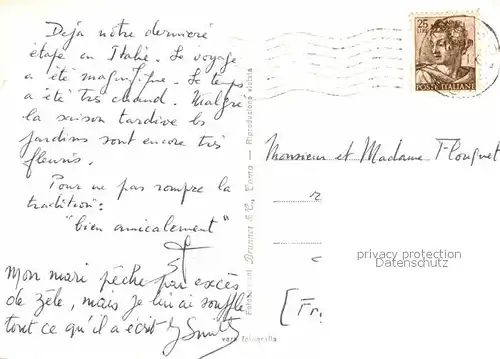 Déjà nôtre derniere
étape en Italie. Le voyage
a été magnifique. Le temps
a été très chaud. Malgré
la saison tardive les
jardins sont encore très
fleuris.
Pour ne pas rompre la
tradition:
"bien amicalement"
Mon mari pêche par excès
de zêle, mais je lui ai soufflé
tout ce qu'il a écrit
25
POSTE ITALIANE
Monsieur et Madame
[Fr.
privacy protection
Datenschutz
Brunner & C., Como - Riproduzione vietata
vera fotografia